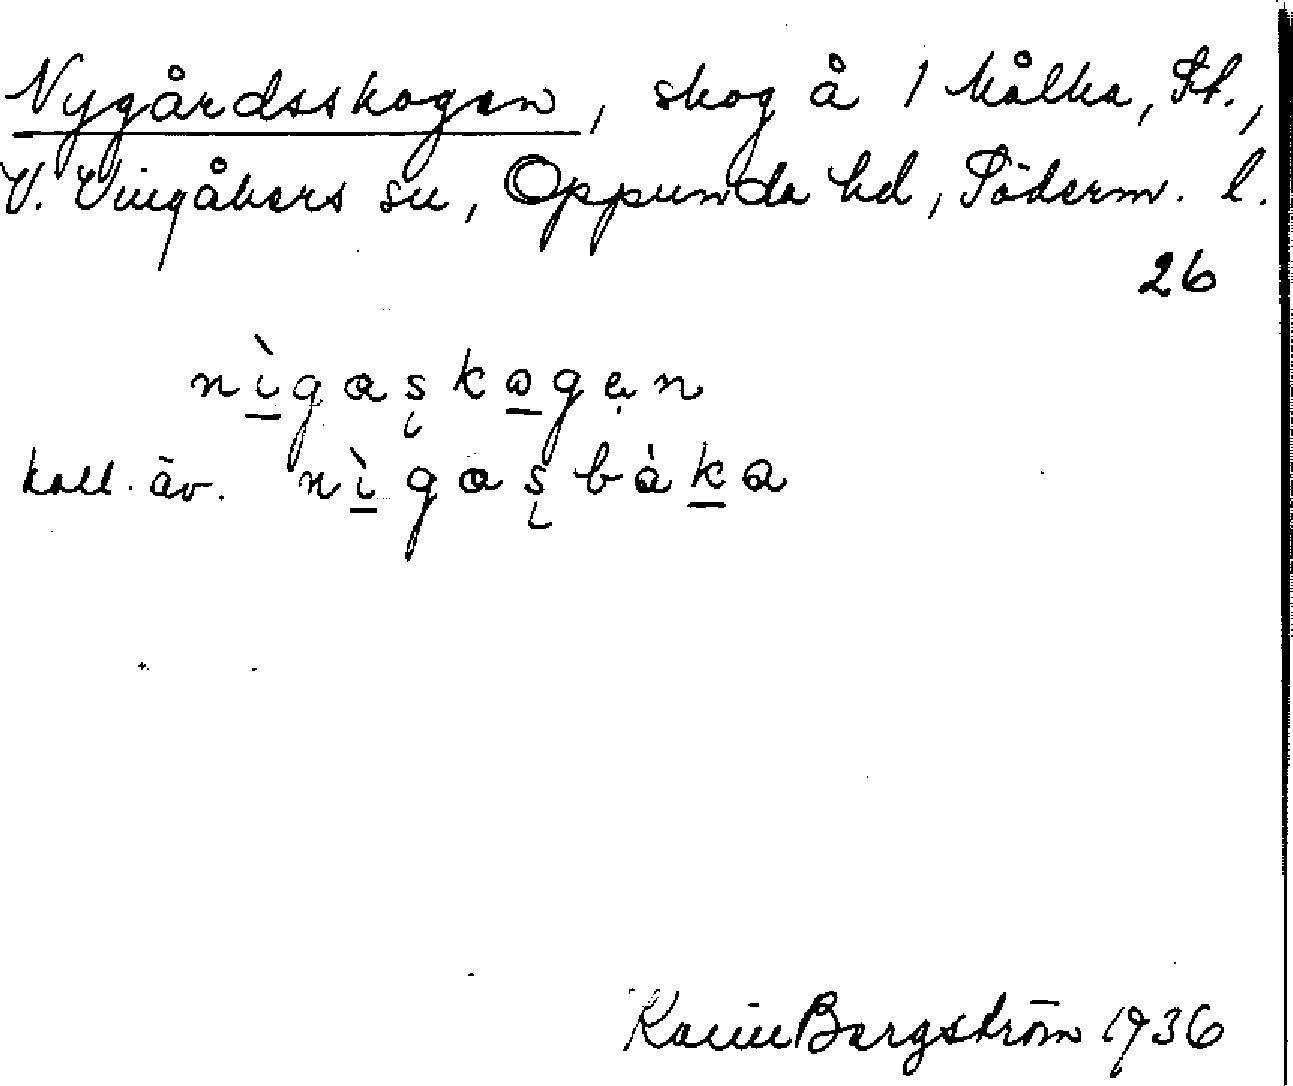 Nygårdsskogen, skog å 1 Kålka, St.,
V. Vingåkers sn, Oppunda hd, Söderm. l.
26
nìgaşkogen
kall. äv. nìgaşbàka
Karin Bergström 1936